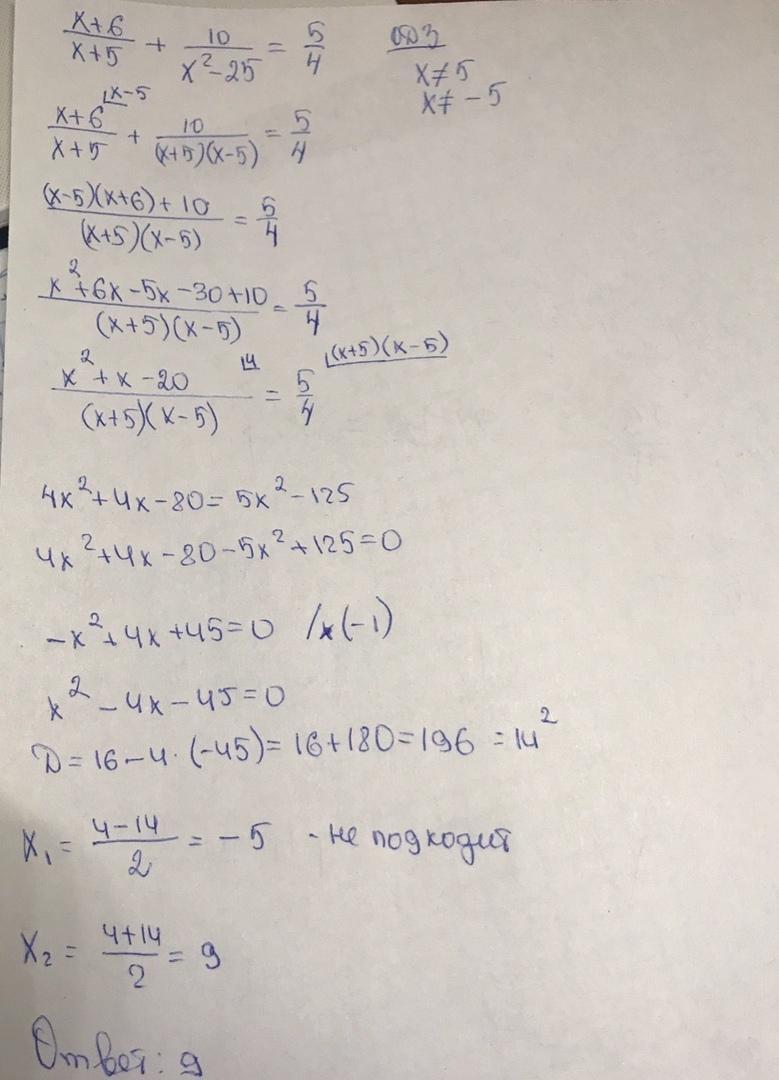 (x+6)/(x+5) + 10/(x²-25) = 5/4 ОДЗ
x≠5
x≠-5
(x+6)/(x+5) ⌊x-5 + 10/((x+5)(x-5)) = 5/4
((x-5)(x+6)+10)/((x+5)(x-5)) = 5/4
(x²+6x-5x-30+10)/((x+5)(x-5)) = 5/4
(x²+x-20)/((x+5)(x-5)) ⌊4 = 5/4 ⌊(x+5)(x-5)
4x²+4x-80=5x²-125
4x²+4x-80-5x²+125=0
-x²+4x+45=0 /x(-1)
x²-4x-45=0
D=16-4·(-45)=16+180=196=14²
x₁=(4-14)/2=-5 - не подходит
x₂=(4+14)/2=9
Ответ: 9